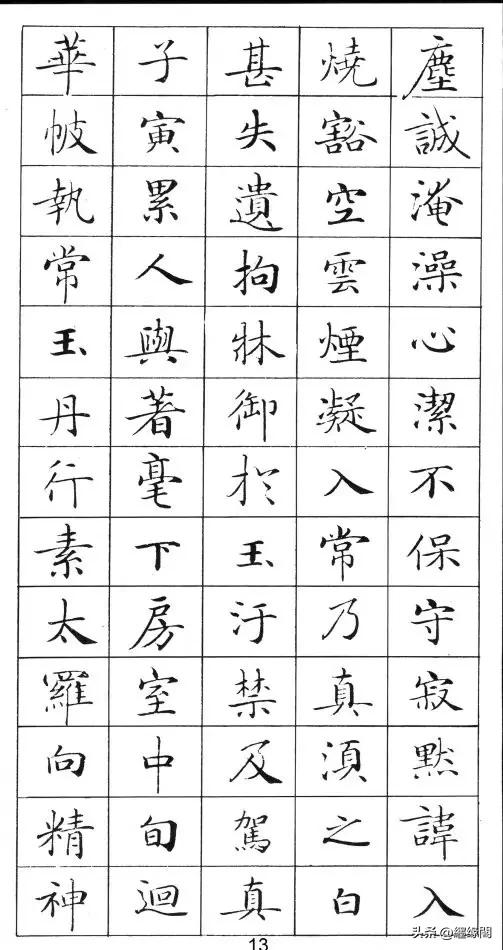 塵誠淹澡心潔不保守寂默諱入
燒豁空雲煙凝入常乃真湏之白
甚失遺拘牀御於玉汙禁及駕真
子寅累人與著毫下房室中旬迴
華帔執常玉丹行素太羅向精神
13
头条@纒緣閣